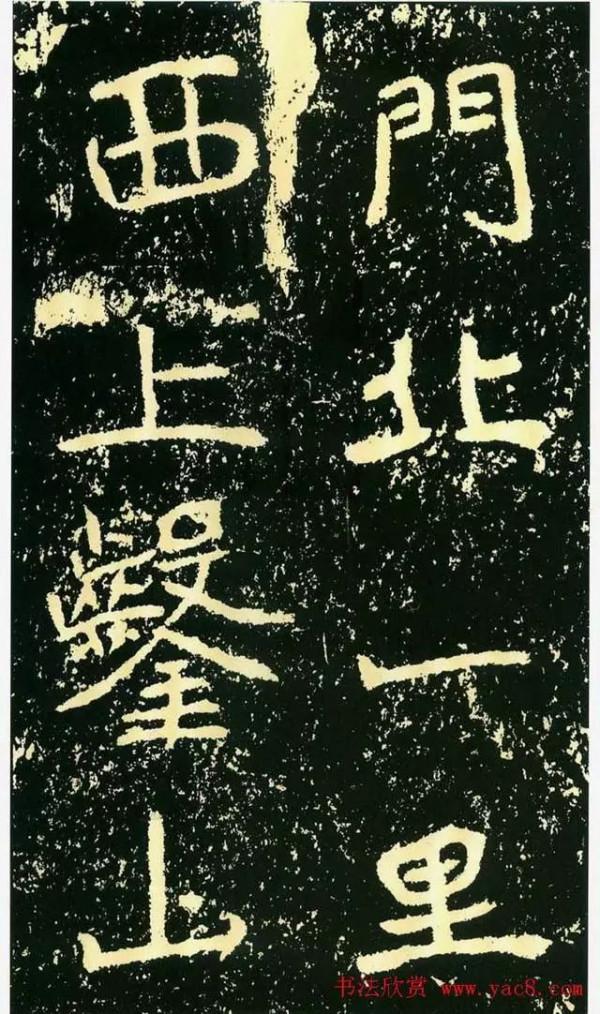 門北一里
西上鑿山
书法欣赏 www.yac8.com